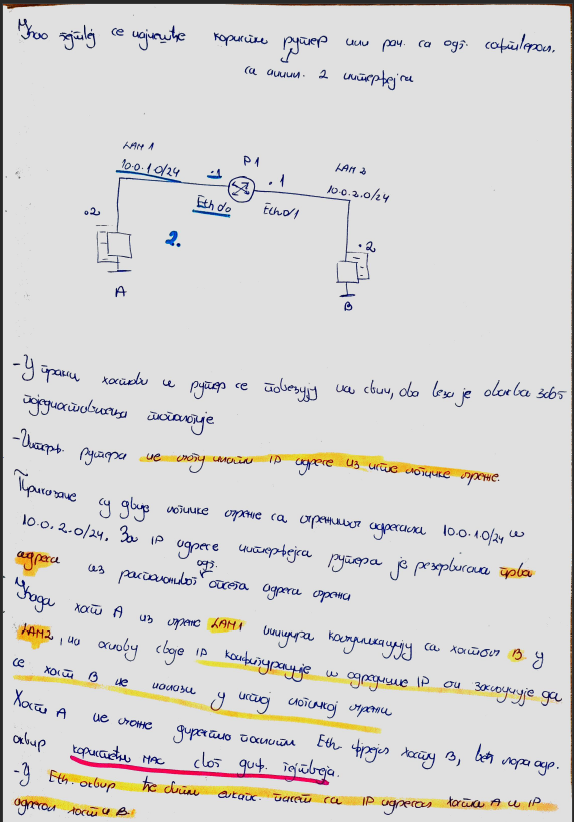 Као гејтвеј се најчешће користи рутер или рач. са одг. софтвером.
са миним. 2 интерфејса
LAN 1
10.0.1.0/24
.1
P1
.1
LAN 2
10.0.2.0/24
Eth0/0
Eth0/1
.2
2.
.2
A
B
-У пракси хостови и рутер се повезују на свич, ова веза је оваква због
поједностављења топологије
-Интерф. рутера не могу имати IP адресе из исте логичке мреже.
Приказане су двије логичке мреже са мрежним адресама 10.0.1.0/24 и
10.0.2.0/24. За IP адресе интерфејса рутера је резервисана прва
адреса из расположивог опсега адреса мрежа
одг.
Када хост A из мреже LAN1 иницира комуникацију са хостом B у
LAN2, на основу своје IP конфигурације и одредишне IP он закључује да
се хост B не налази у истој логичкој мрежи
Хост A не може директно послати Eth. фрејм хосту B, већ мора
оквир користећи MAC свог деф. гејтвеја.
-У Eth. оквир ће бити енкапс. пакет са IP адресом хоста A и IP
адресом хоста B.